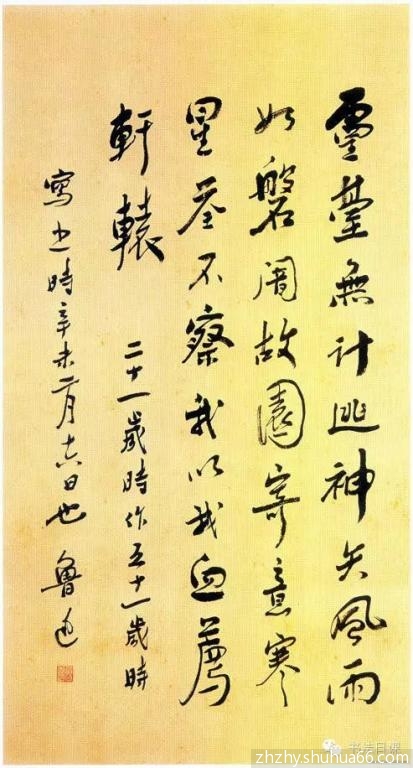 靈臺無計逃神矢風雨
如磐闇故園寄意寒
星荃不察我以我血薦
軒轅
二十一歲時作五十一歲時
寫之時辛未二月十六日也 魯迅
zhzhyshuhua66.com